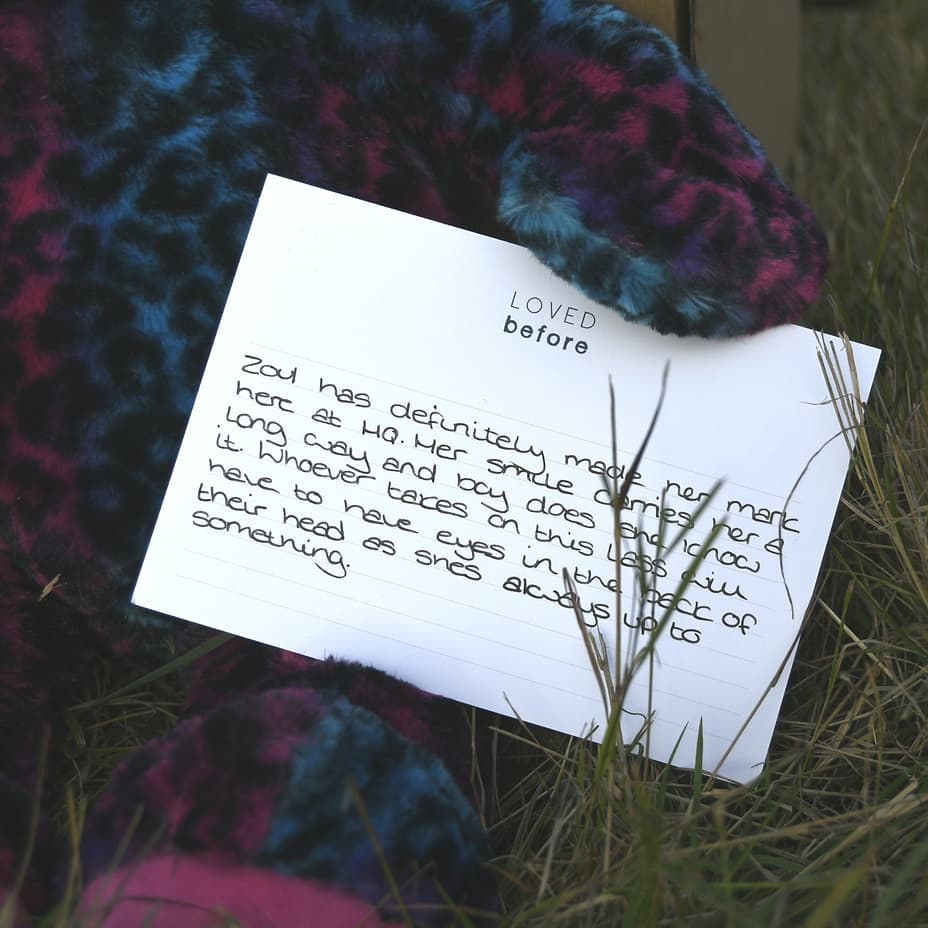 LOVED
before
Zoul has definitely made her mark
here at HQ. Her smile carries her a
long way and boy does she know
it. Whoever takes on this lass will
have to have eyes in the back of
their head as shes always up to
something.